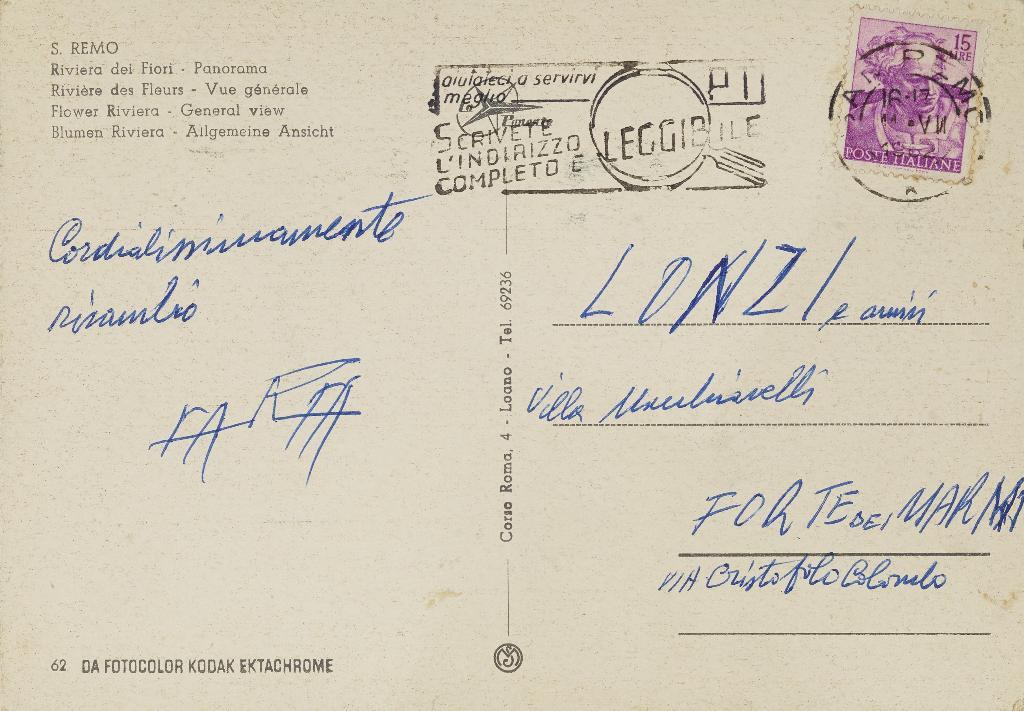 S. REMO
Riviera dei Fiori - Panorama
Rivière des Fleurs - Vue générale
Flower Riviera - General view
Blumen Riviera - Allgemeine Ansicht
aiutateci a servirvi
meglio
SCRIVETE
L'INDIRIZZO
COMPLETO E
LEGGIBILE
PT
15
LIRE
POSTE ITALIANE
Cordialissimamente
LONZI e amici
Villa Machiavelli
FORTE DEI MARMI
VIA Cristofolo Colombo
Corso Roma, 4 - Loano - Tel. 69236
62 DA FOTOCOLOR KODAK EKTACHROME